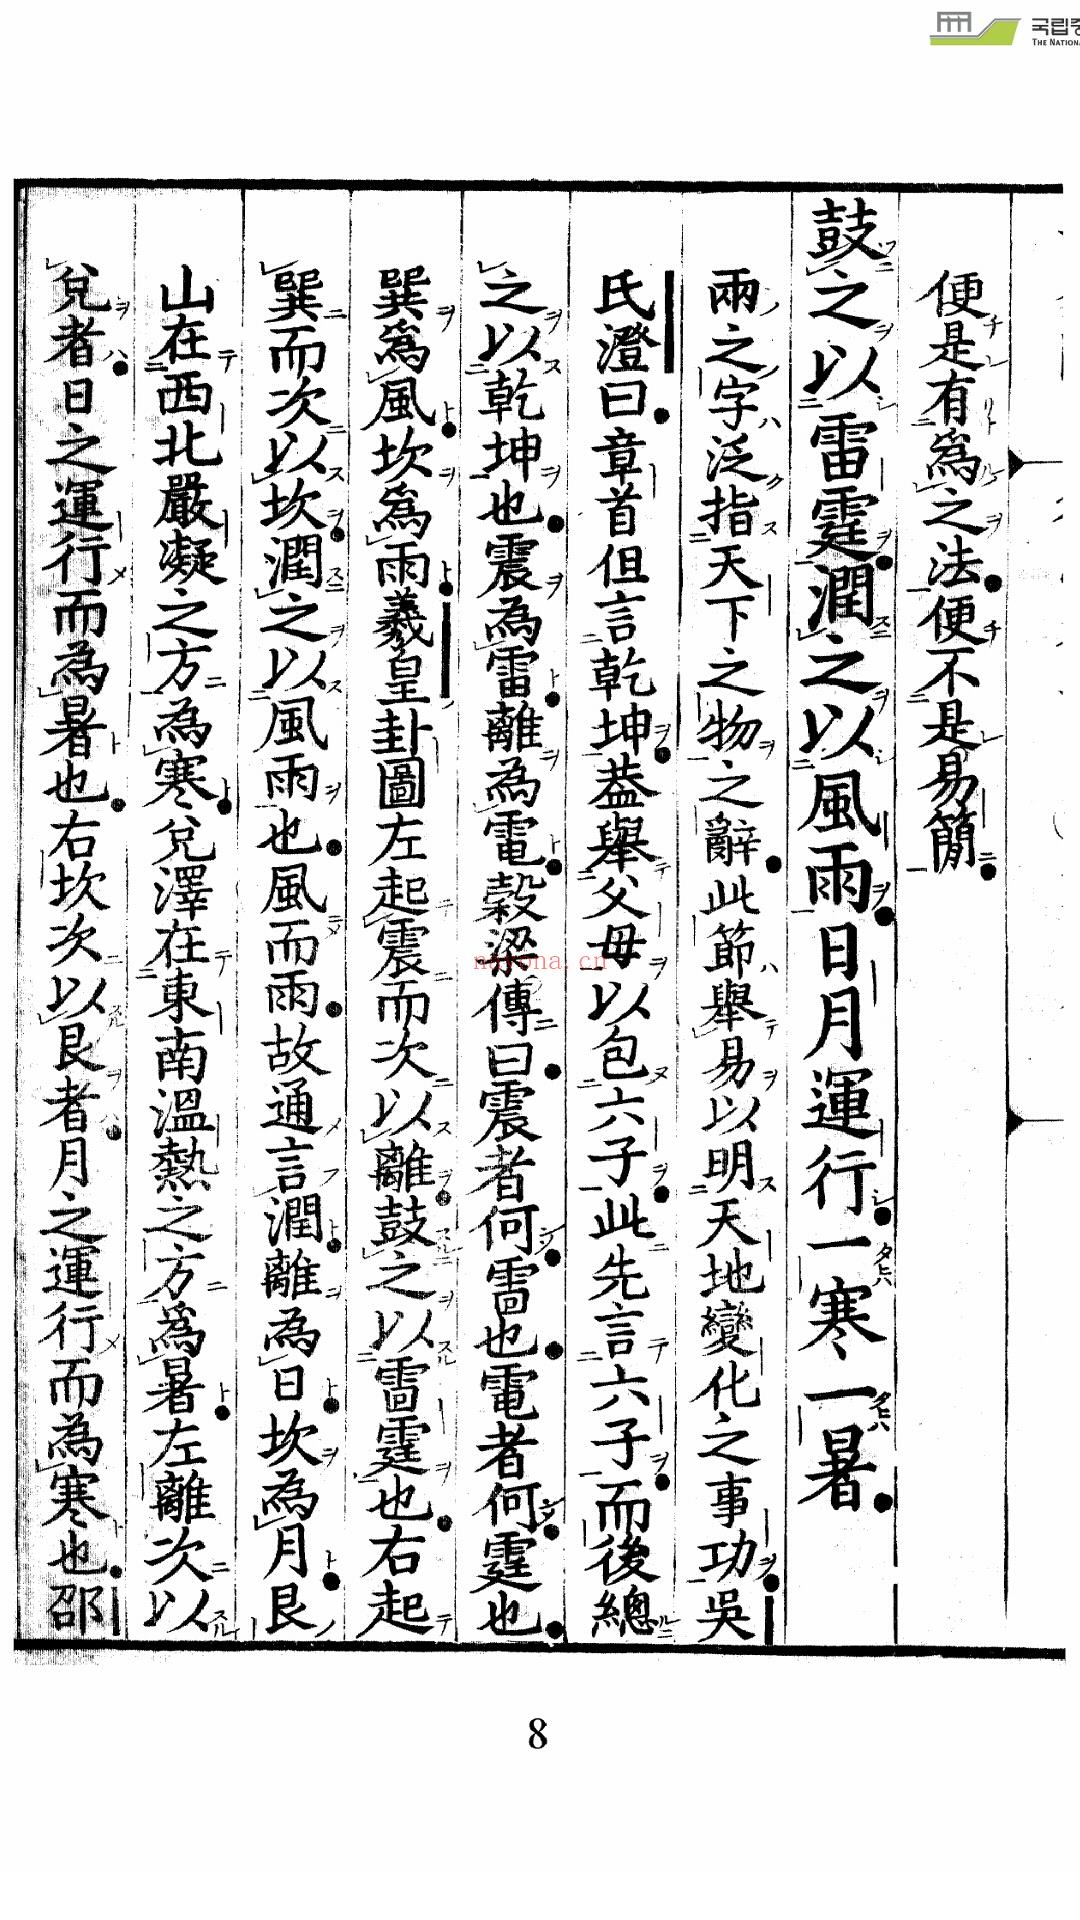 국립중
THE NATIONA
便是有為之法便不是易簡
鼓之以雷霆潤之以風雨日月運行一寒一暑
兩之字泛指天下之物之辭此節舉易以明天地變化之事功吳
氏澄曰章首但言乾坤蓋舉父母以包六子此先言六子而後總
之以乾坤也震為雷離為電穀梁傳曰震者何雷也電者何霆也
巽為風坎為雨羲皇卦圖左起震而次以離鼓之以雷霆也右起
巽而次以坎潤之以風雨也風而雨故通言潤離為日坎為月艮
山在西北嚴凝之方為寒兌澤在東南溫熱之方為暑左離次以
兌者日之運行而為暑也右坎次以艮者月之運行而為寒也邵
nayona.cn
8